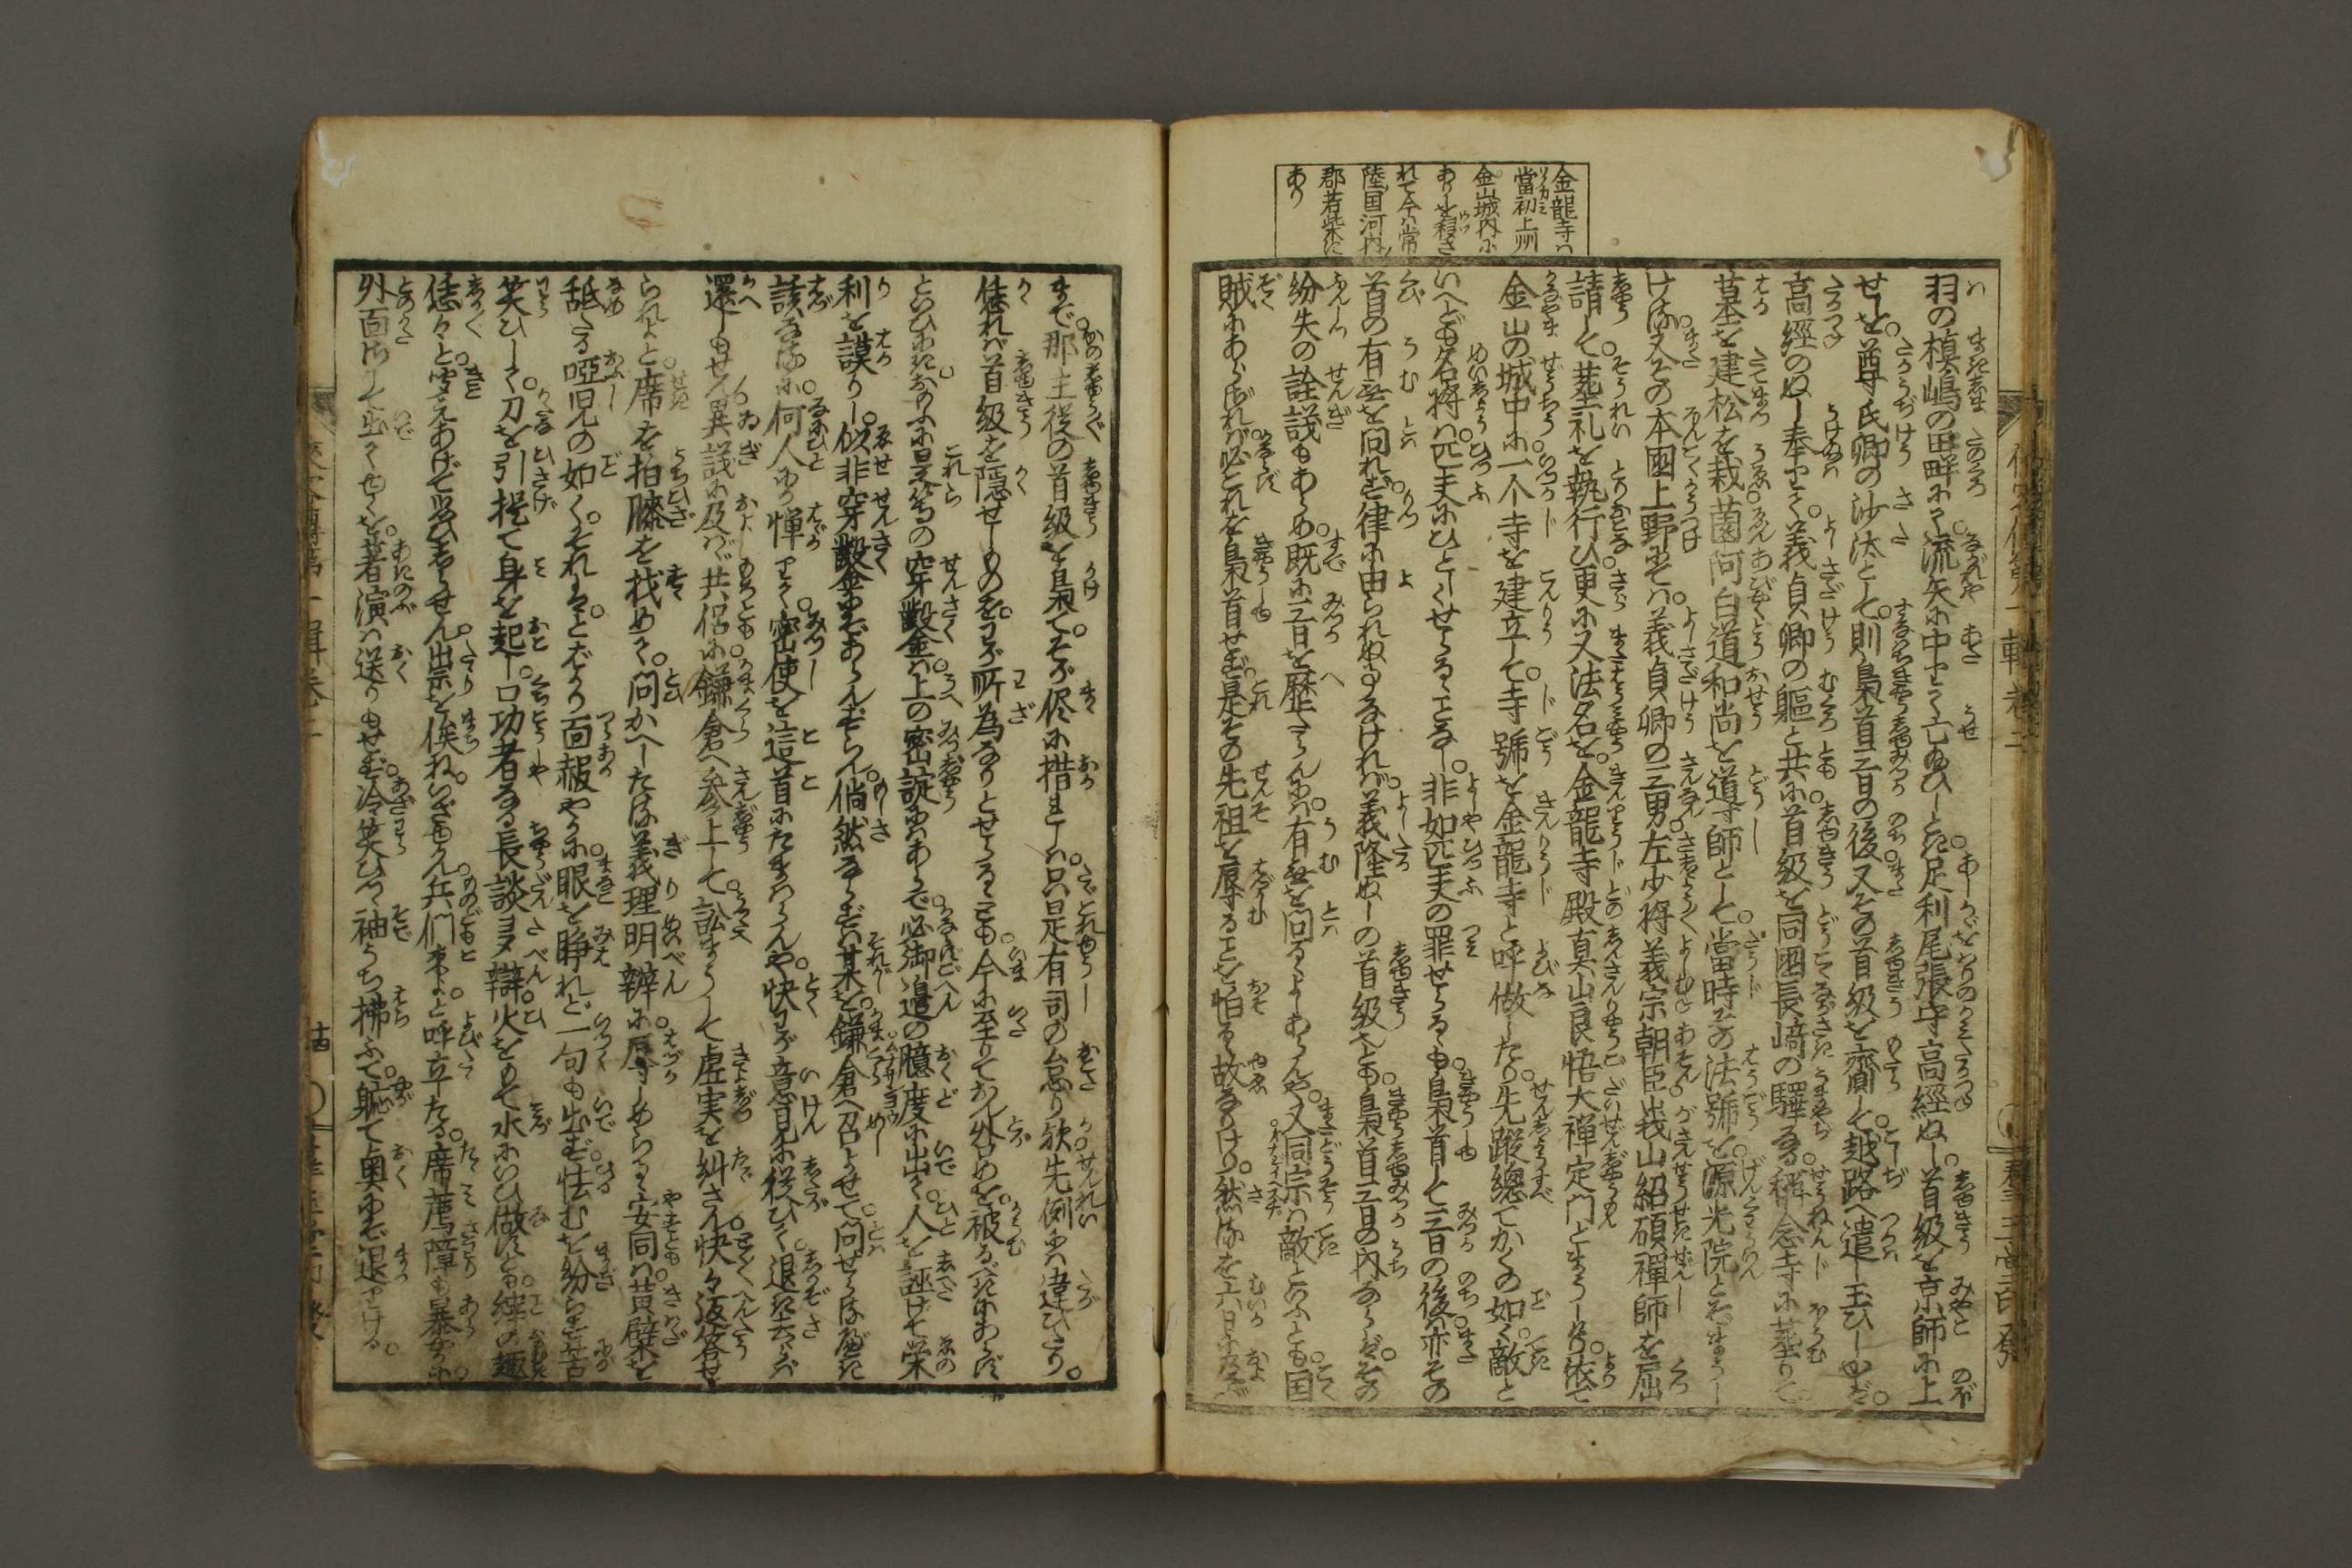 金龍寺ハ
當初上州
金山城内に
ありしを移さ
れて今ハ常
陸国河内
郡若柴に
あり
羽の槙嶋の田畔にて流矢に中りて亡給ひしとき足利尾張守高經ぬし首級を京師に上
せしを尊氏卿の沙汰として則梟首三日の後又その首級を齎して越路へ遣し玉ひしかば
高經のぬし奉りて義貞卿の軀と共に首級を同國長﨑の驛なる稱念寺に葬りて
墓を建松を栽薗阿白道和尚を道師として當時その法號を源光院とぞまうし
ける又その本國上野にては義貞卿の三男左少將義宗朝臣峩山紹碩禪師を屈
請して葬礼を執行ひ更に又法名を金龍寺殿真山良悟大禪定門とまうしけり依て
金山の城中に一个寺を建立して寺號を金龍寺と呼做したり先蹤總てかくの如く敵と
いへども名将ハ匹夫にひとしくせらるゝことなし非如匹夫の罪せらるゝも梟首して三日の後ハ亦その
首の有無を問れず律に由られぬるなければ義隆ぬしの首級也とも梟首三日の内ならずその
紛失の詮議もあらめ既に三日を歴たらんにハ有無を問るゝよしあらんや又同宗ハ敵といふとも国
賊にあらざれバ必これを梟首せず是その先祖を辱るを怕るゝ故なりけり然るを六日に及ぶ
まで那主從の首級を梟てそが儘に措ましハ只是有司の怠り歟先例にハ違ひたり
恁れバ首級を隱せしものをわが所為なりとせらるゝとも今に至りておん咎めを被るべきにあらず
といひにきかるに是等の穿鑿ハ上の密諚にハあらで必御邊の臆度に出て人を誣けて栄
利を謀りし似非穿鑿にぞあらんずらん倘然ならずハ某を鎌倉へ召よせて問せらるべき
該なるに何人にか憚りて密使を這首にたまハらんや快わが意見に從ひて退き去らバ
還しもせん異議に及バゞ共侶に鎌倉へ參上して訟まうして虚実を糾さん快々返答せ
られよと席を拍膝を找めて問かへしたる義理明辨に辱しめらるゝ安同ハ黄檗を
舐たる啞児の如くそれハとばかり面赧やかに眼を睜れど一句も出ず怯むを紛らす苦
笑ひして刀を引提て身を起し口功者なる長談ヨタ辯火をもて水にいひ做すとも縡の趣
恁々と聞えあげて思ひしらせん出宗を俟ね いざ給へ兵们來よと呼立たる席薦障も暴らかに
外面にして出てゆくを著演ハ送りもせず冷笑ひつゝ袖うち拂ふて軈て奥にぞ退りける